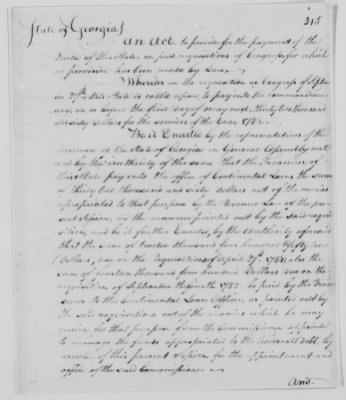 State of Georgia}
313
An Act to provide for the payment of the
Quota of this State, on past requisitions of Congress for which
no provision has been made by Law.
Whereas in the requisition of Congress of
27th this State is called upon to pay into the common treasu-
ry, on or before the first day of may next, thirty two thousand
and sixty dollars for the services of the Year 1785.
Be it Enacted by the representatives of the
freemen of the State of Georgia in General Assembly met
and by the authority of the same that the Treasurer of
this State pay into the office of Continental Loans, the sum
of thirty two thousand and sixty dollars out of the monies
appropriated to that purpose by the Revenue Law of the pre-
sent Session, in the manner pointed out by the said requi-
sition, and be it further Enacted, by the Authority aforesaid
that the sum of twelve thousand four hundred & fifty two
Dollars, due on the requisition of April 27th 1784, also the
sum of fourteen thousand four hundred Dollars due on the
requisition of September the 1782, be paid by the Trea-
surer to the Continental Loan Officer, as pointed out by
the said requisitions out of the monies which he may
receive for that purpose from the Commissioner appointed
to manage the funds appropriated to the foederal debt, by
an act of this present Session for the appointment and
office of the said Commissioner
And.